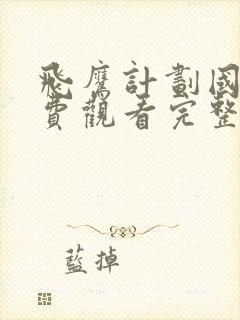 飛鷹計劃國
費觀看完整
藍掉